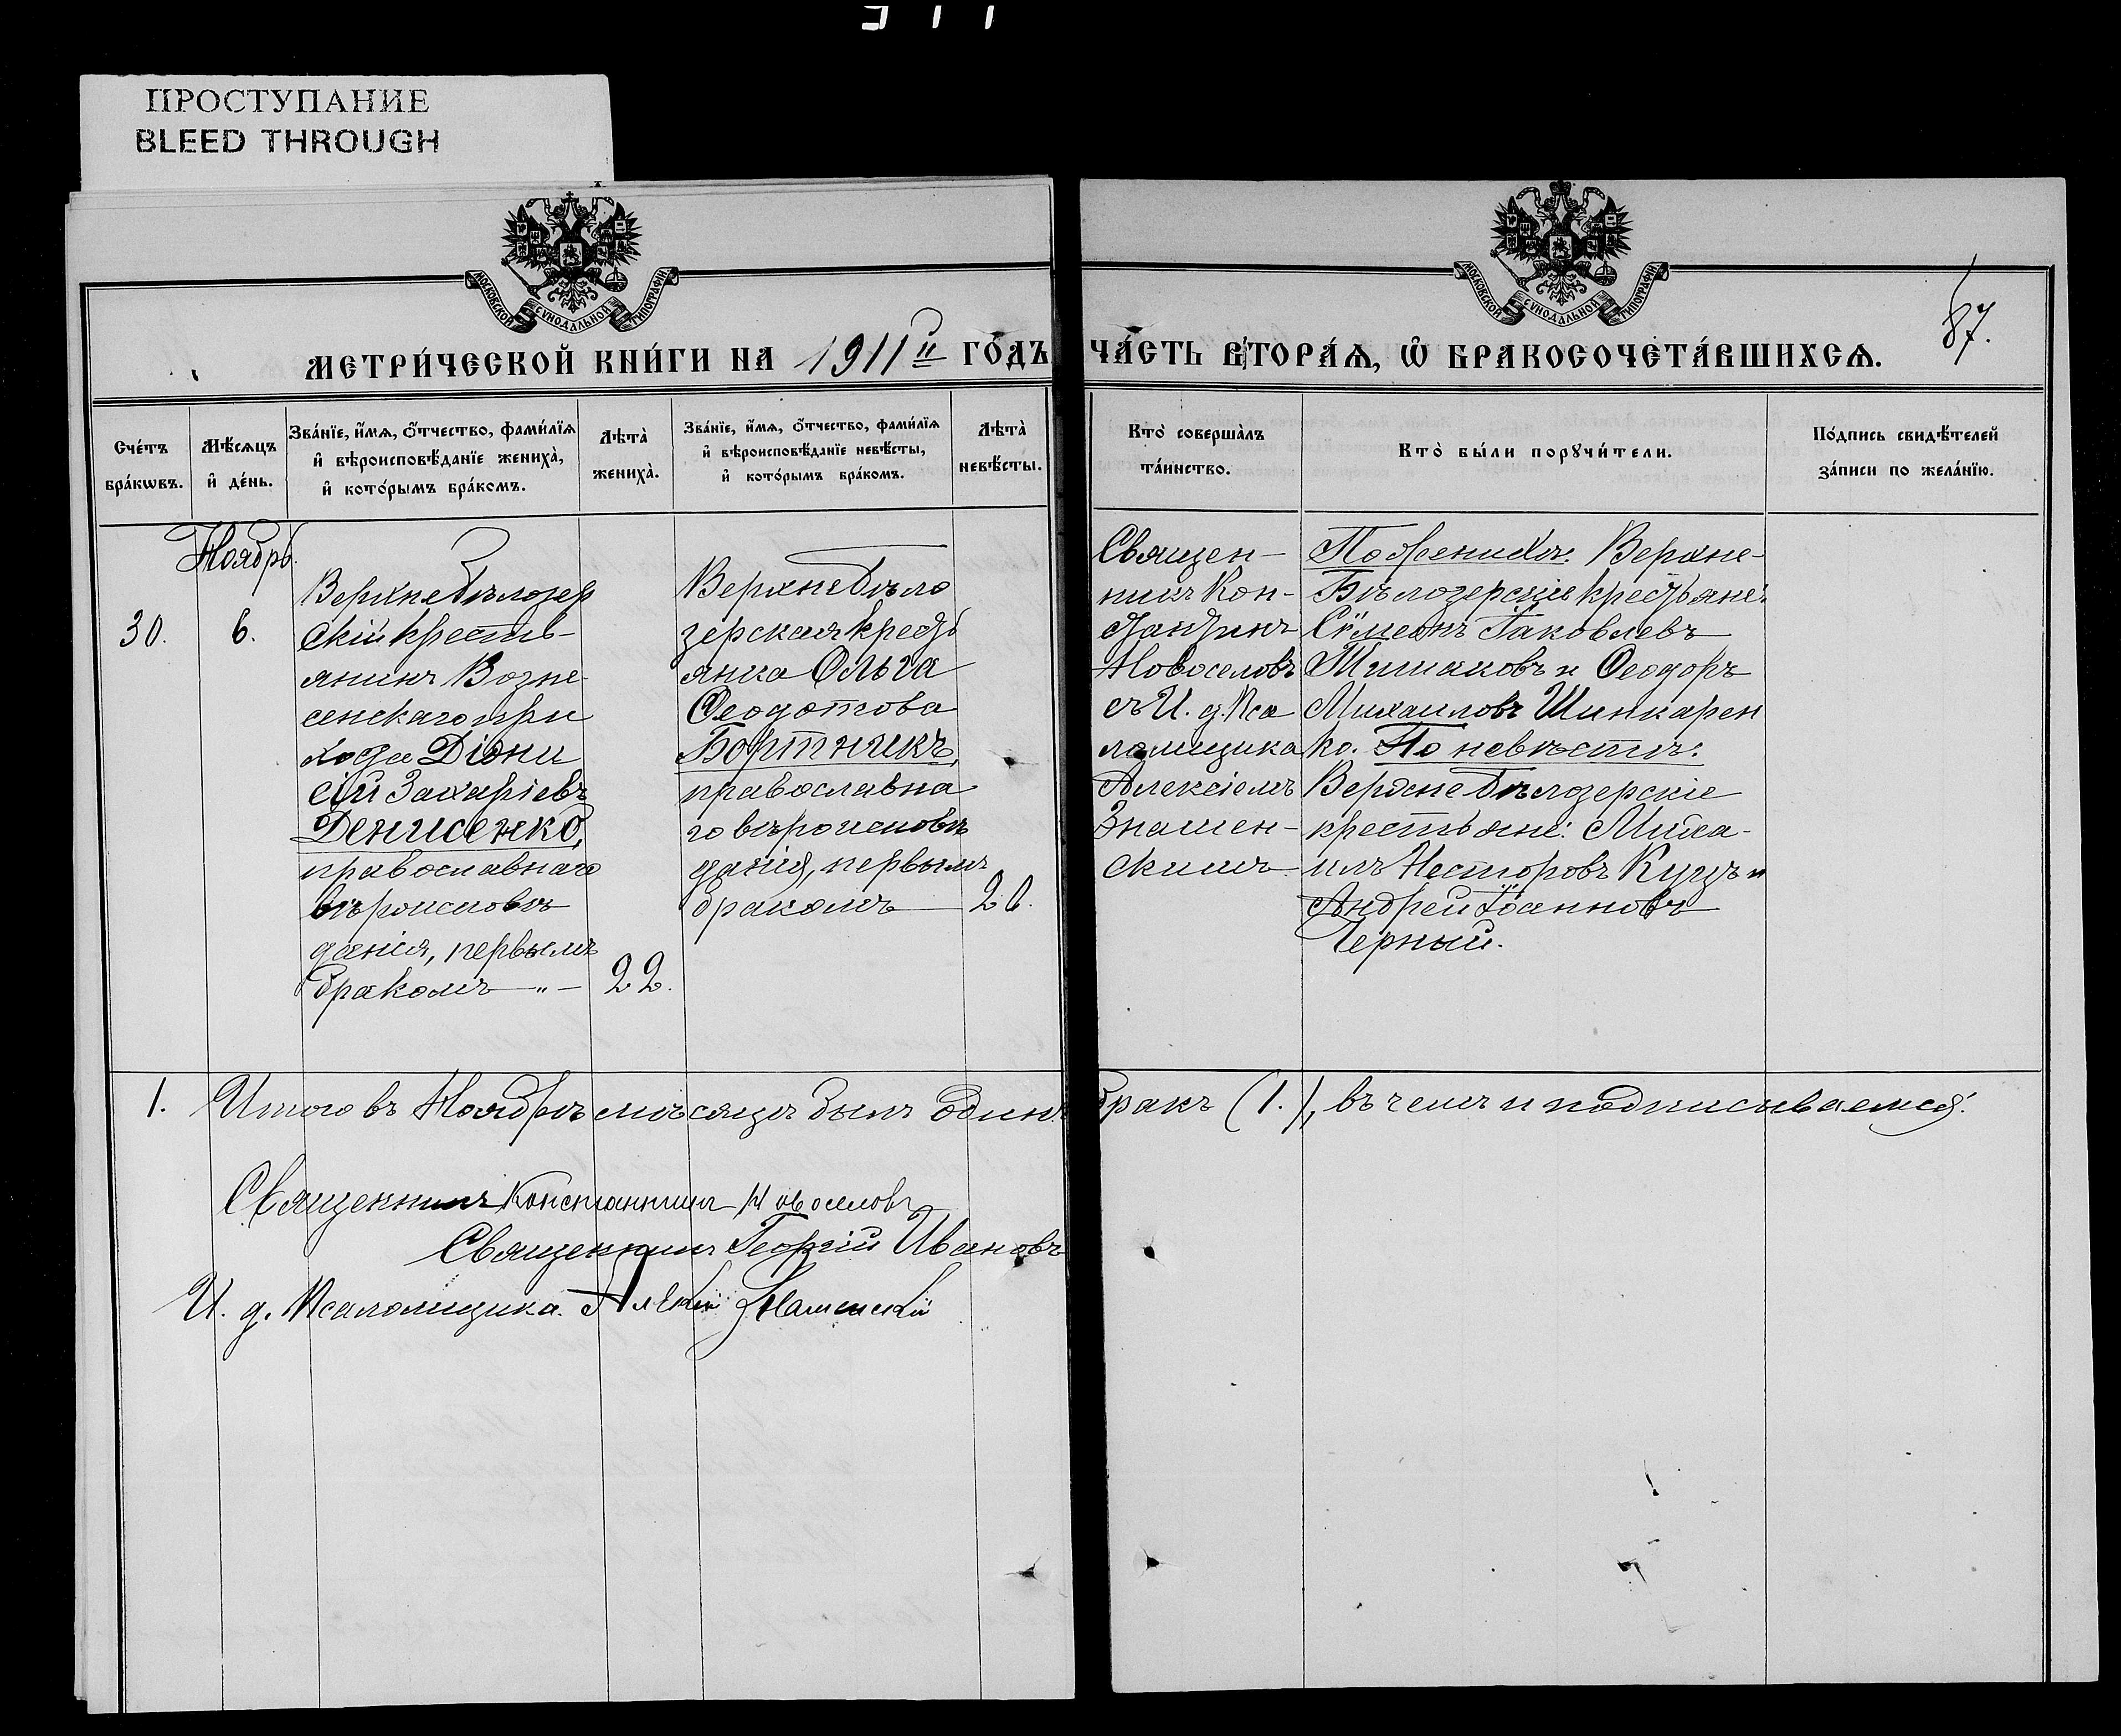 ПРОСТУПАНИЕ
BLEED THROUGH
МОСКОВСКОЙ СѴНОДАЛЬНОЙ ТИПОГРАФІИ
МОСКОВСКОЙ СѴНОДАЛЬНОЙ ТИПОГРАФІИ
87.
МЕТРИ́ЧЕСКОЙ КНИ́ГИ НА 1911й ГО́ДЪ
ЧА́СТЬ ВТОРА́Ѧ, Ѽ БРАКОСОЧЕТА́ВШИХСѦ.
Сче́тъ
бра́кѡвъ.
Мѣ́сѧцъ
и҆ де́нь.
Зва́нїе, и҆́мѧ, ѻ҆́тчество, фамилїѧ
и҆ вѣроисповѣ́данїе жениха̀,
и҆ кото́рымъ бра́комъ.
Лѣта̀
жениха̀.
Зва́нїе, и҆́мѧ, ѻ҆́тчество, фамилїѧ
и҆ вѣроисповѣ́данїе невѣ́сты,
и҆ кото́рымъ бра́комъ.
Лѣта̀
невѣ́сты.
Кто̀ соверша̀лъ
та́инство.
Кто̀ бы́ли порꙋчи́тели.
По́дпись свидѣ́телей
за́писи по жела́нїю.
Ноябрь.
30.
6.
Верхнебѣлозер
скій кресть-
янинъ Возне-
сенскаго при
хода Діони
сій Захаріевъ
Денисенко,
православнаго
вѣроисповѣ
данія, первымъ
бракомъ „ —
22.
Верхнебѣло
зерская кресть
янка Ольга
Ѳеодотова
Бортникъ,
православна
го вѣроисповѣ
данія, первымъ
бракомъ —
20.
Священ-
никъ Кон-
стантинъ
Новоселовъ
съ И. д. Пса
ломщика
Алексіемъ
Знамен-
скимъ
По женихѣ: Верхне-
Бѣлозерскіе крестьяне:
Сѵмеонъ Іаковлевъ
Тимаковъ и Ѳеодоръ
Михаиловъ Шинкарен
ко. По невѣстѣ:
Верхнебѣлозерскіе
крестьяне: Миха-
илъ Несторовъ Куцъ и
Андрей Іоанновъ
Черный.
1. Итого въ Ноябрѣ мѣсяцѣ былъ одинъ
бракъ (1.), въ чемъ и подписываемся.
Священникъ Константинъ Новоселовъ
Священникъ Георгій Ивановъ
И. д. Псаломщика Алексій Знаменскій